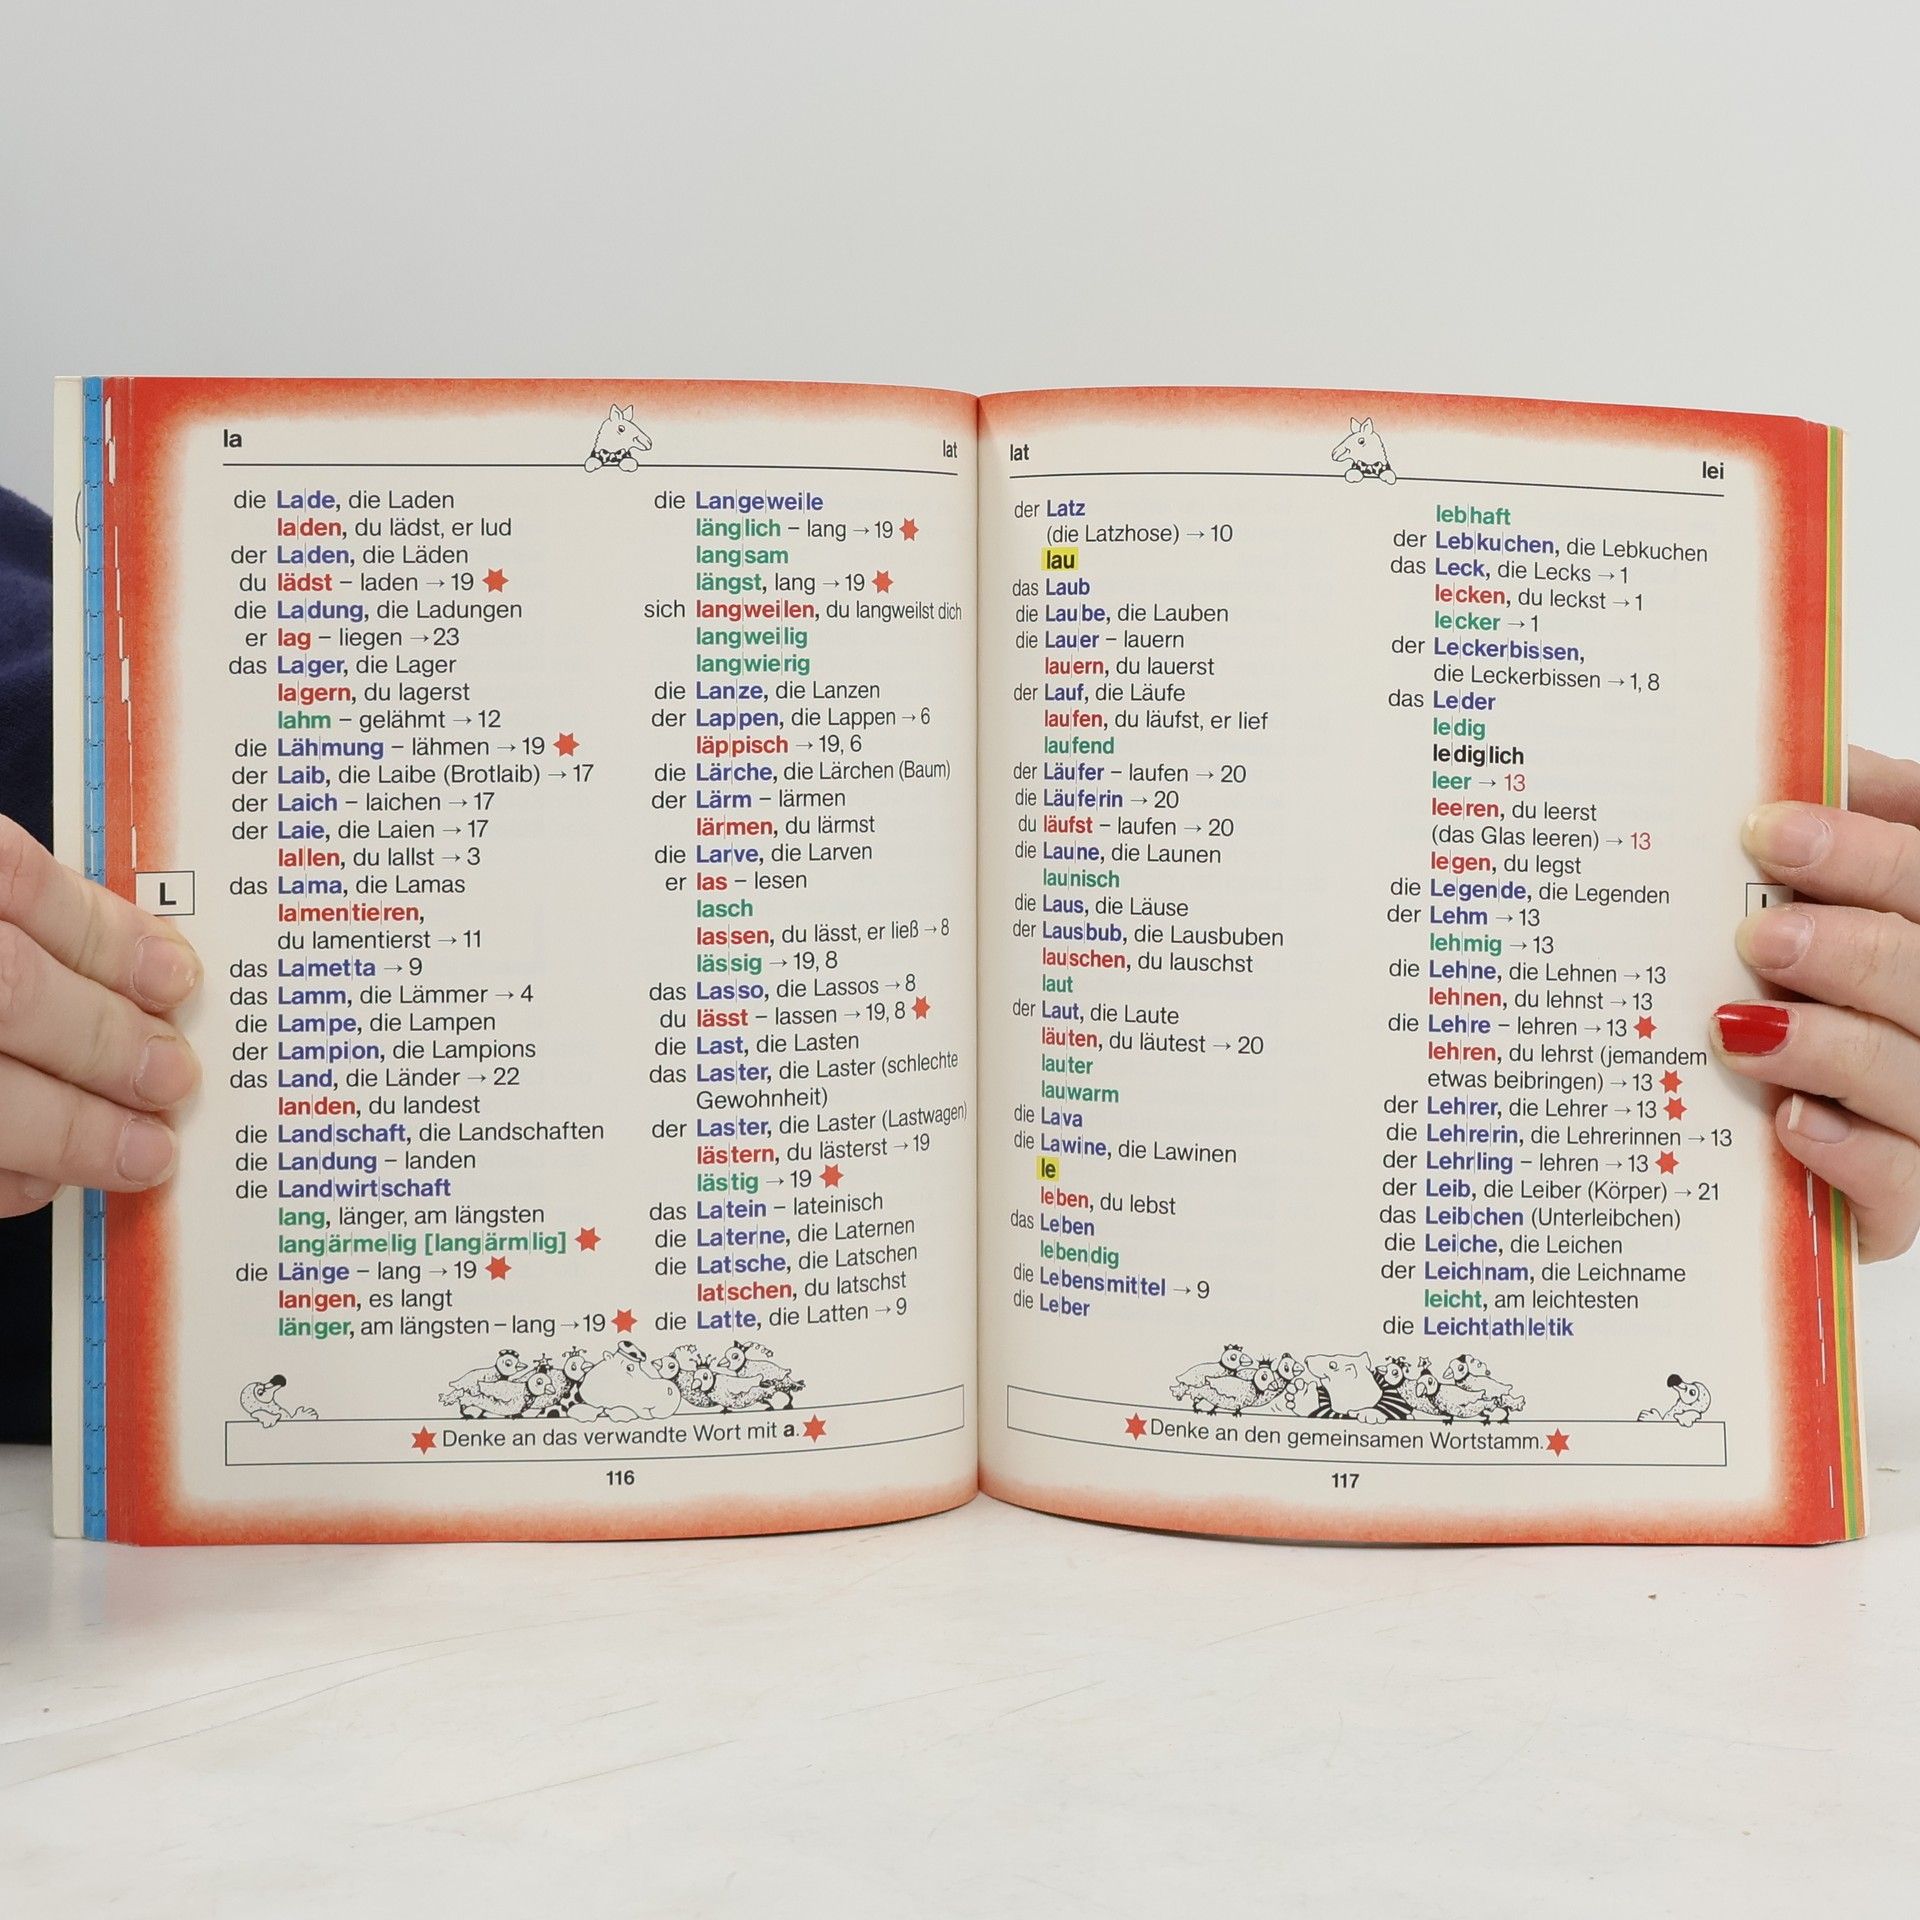 la
lat
die Lade, die Laden
laden, du lädst, er lud
der Laden, die Läden
du lädst – laden → 19
die Ladung, die Ladungen
er lag – liegen → 23
das Lager, die Lager
lagern, du lagerst
lahm – gelähmt → 12
die Lähmung – lähmen → 19
der Laib, die Laibe (Brotlaib) → 17
der Laich – laichen → 17
der Laie, die Laien → 17
lallen, du lallst → 3
das Lama, die Lamas
lamentieren,
du lamentierst → 11
das Lametta → 9
das Lamm, die Lämmer → 4
die Lampe, die Lampen
der Lampion, die Lampions
das Land, die Länder → 22
landen, du landest
die Landschaft, die Landschaften
die Landung – landen
die Landwirtschaft
lang, länger, am längsten
langärmelig [langärmlig]
die Länge – lang → 19
langen, es langt
länger, am längsten – lang → 19
die Langeweile
länglich – lang → 19
langsam
längst, lang → 19
sich langweilen, du langweilst dich
langweilig
langwierig
die Lanze, die Lanzen
der Lappen, die Lappen → 6
läppisch → 19, 6
die Lärche, die Lärchen (Baum)
der Lärm – lärmen
lärmen, du lärmst
die Larve, die Larven
er las – lesen
lasch
lassen, du lässt, er ließ → 8
lässig → 19, 8
das Lasso, die Lassos → 8
du lässt – lassen → 19, 8
die Last, die Lasten
das Laster, die Laster (schlechte
Gewohnheit)
der Laster, die Laster (Lastwagen)
lästern, du lästerst → 19
lästig → 19
das Latein – lateinisch
die Laterne, die Laternen
die Latsche, die Latschen
latschen, du latschst
die Latte, die Latten → 9
L
Denke an das verwandte Wort mit a.
116
lat
lei
der Latz
(die Latzhose) → 10
lau
das Laub
die Laube, die Lauben
die Lauer – lauern
lauern, du lauerst
der Lauf, die Läufe
laufen, du läufst, er lief
laufend
der Läufer – laufen → 20
die Läuferin → 20
du läufst – laufen → 20
die Laune, die Launen
launisch
die Laus, die Läuse
der Lausbub, die Lausbuben
lauschen, du lauschst
laut
der Laut, die Laute
läuten, du läutest → 20
lauter
lauwarm
die Lava
die Lawine, die Lawinen
le
leben, du lebst
das Leben
lebendig
die Lebensmittel → 9
die Leber
lebhaft
der Lebkuchen, die Lebkuchen
das Leck, die Lecks → 1
lecken, du leckst → 1
lecker → 1
der Leckerbissen,
die Leckerbissen → 1, 8
das Leder
ledig
lediglich
leer → 13
leeren, du leerst
(das Glas leeren) → 13
legen, du legst
die Legende, die Legenden
der Lehm → 13
lehmig → 13
die Lehne, die Lehnen → 13
lehnen, du lehnst → 13
die Lehre – lehren → 13
lehren, du lehrst (jemandem
etwas beibringen) → 13
der Lehrer, die Lehrer → 13
die Lehrerin, die Lehrerinnen → 13
der Lehrling – lehren → 13
der Leib, die Leiber (Körper) → 21
das Leibchen (Unterleibchen)
die Leiche, die Leichen
der Leichnam, die Leichname
leicht, am leichtesten
die Leichtathletik
Denke an den gemeinsamen Wortstamm.
117